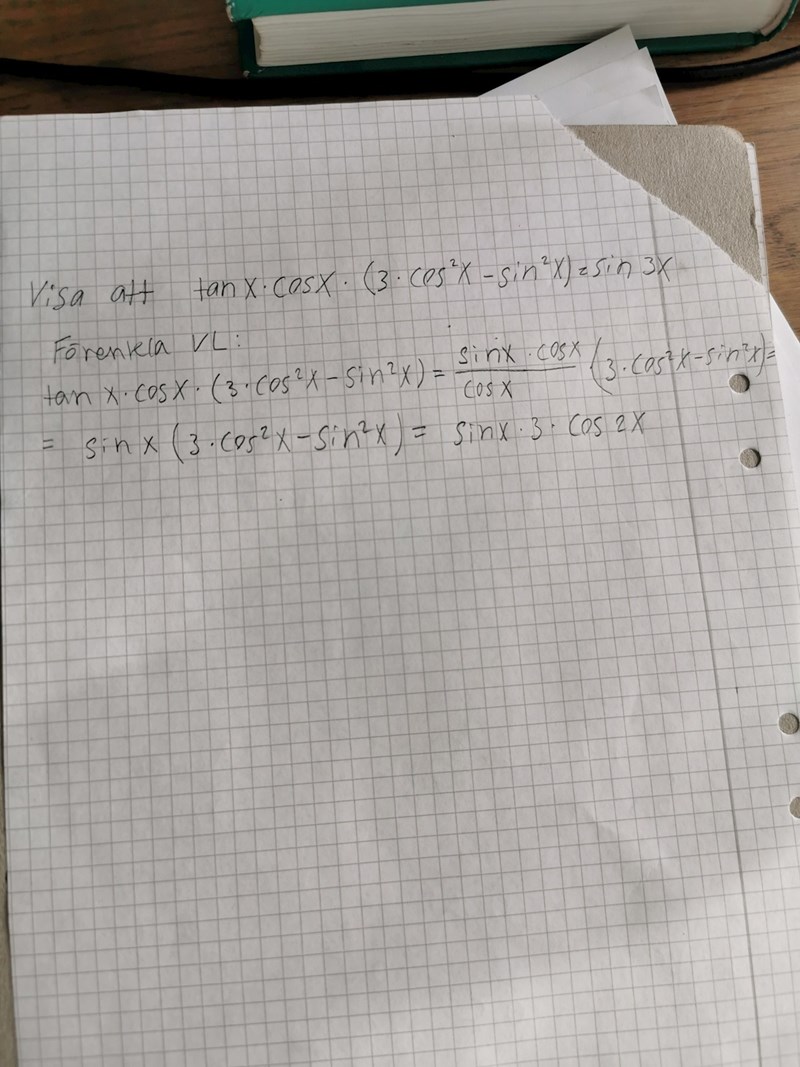 Visa att tan x · cos x · (3 · cos²x - sin²x) = sin 3x
Förenkla VL:
tan x · cos x · (3 · cos²x - sin²x) = sin x · cos x / cos x (3 · cos²x - sin²x) =
= sin x (3 · cos²x - sin²x) = sin x · 3 · cos 2x